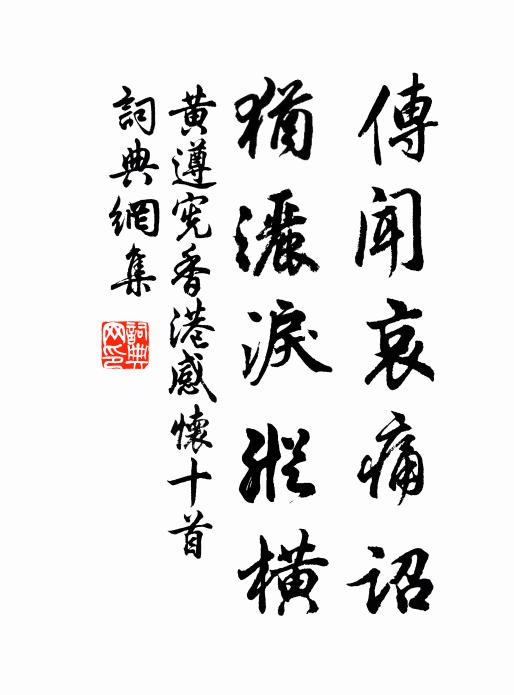 傳聞哀痛詔
猶灑淚縱橫
黃遵憲香港感懷十首
詞典網集
詞典网印